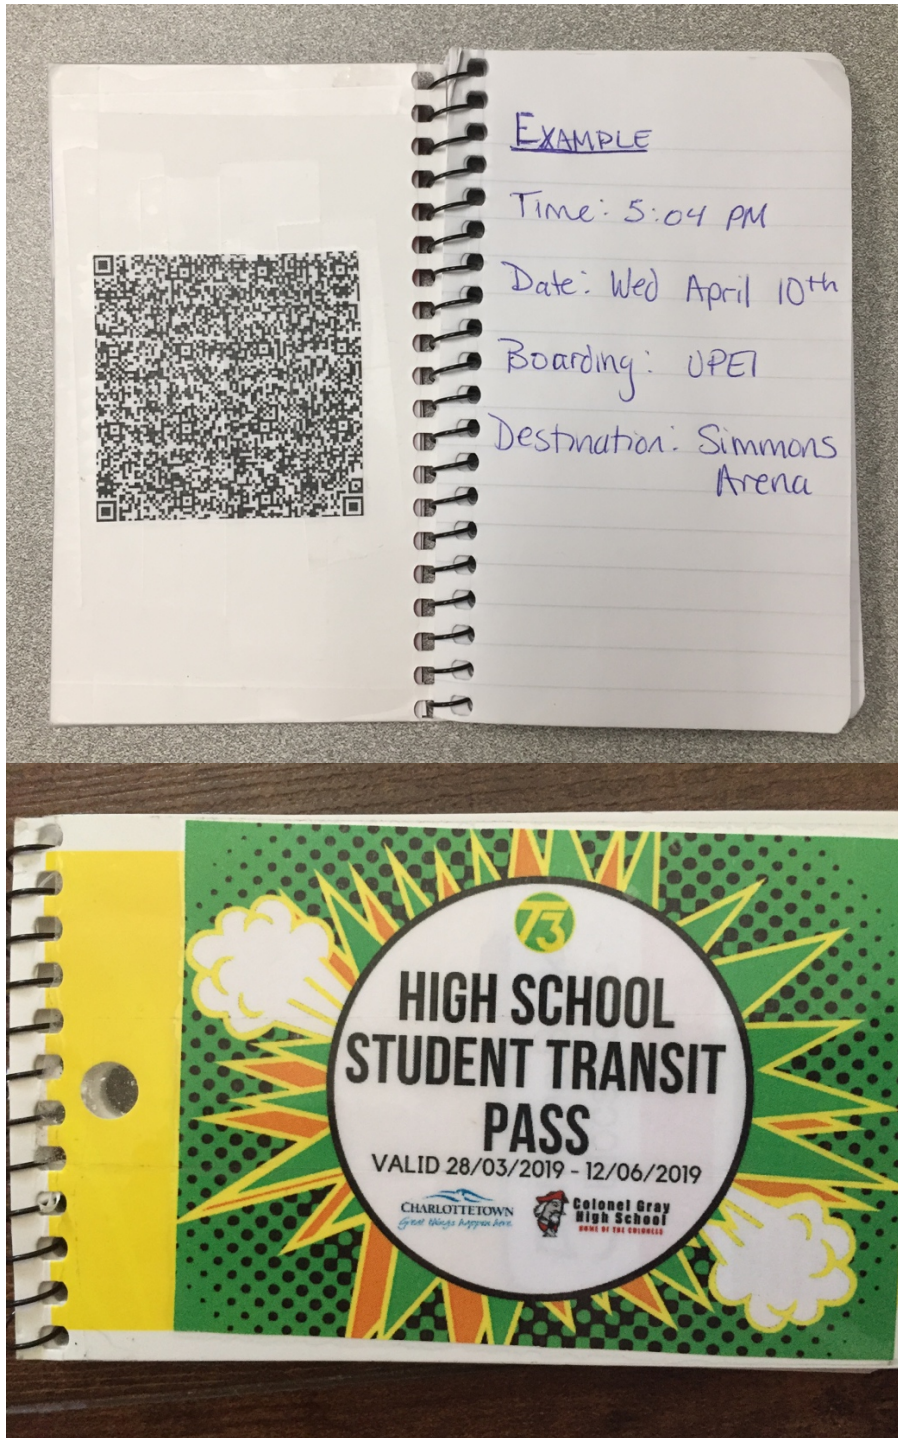 EXAMPLE
Time: 5:04 PM
Date: Wed April 10th
Boarding: UPEI
Destination: Simmons
Arena
T3
HIGH SCHOOL
STUDENT TRANSIT
PASS
VALID 28/03/2019 - 12/06/2019
CHARLOTTETOWN
Great things happen here
Colonel Gray
High School
HOME OF THE COLONELS